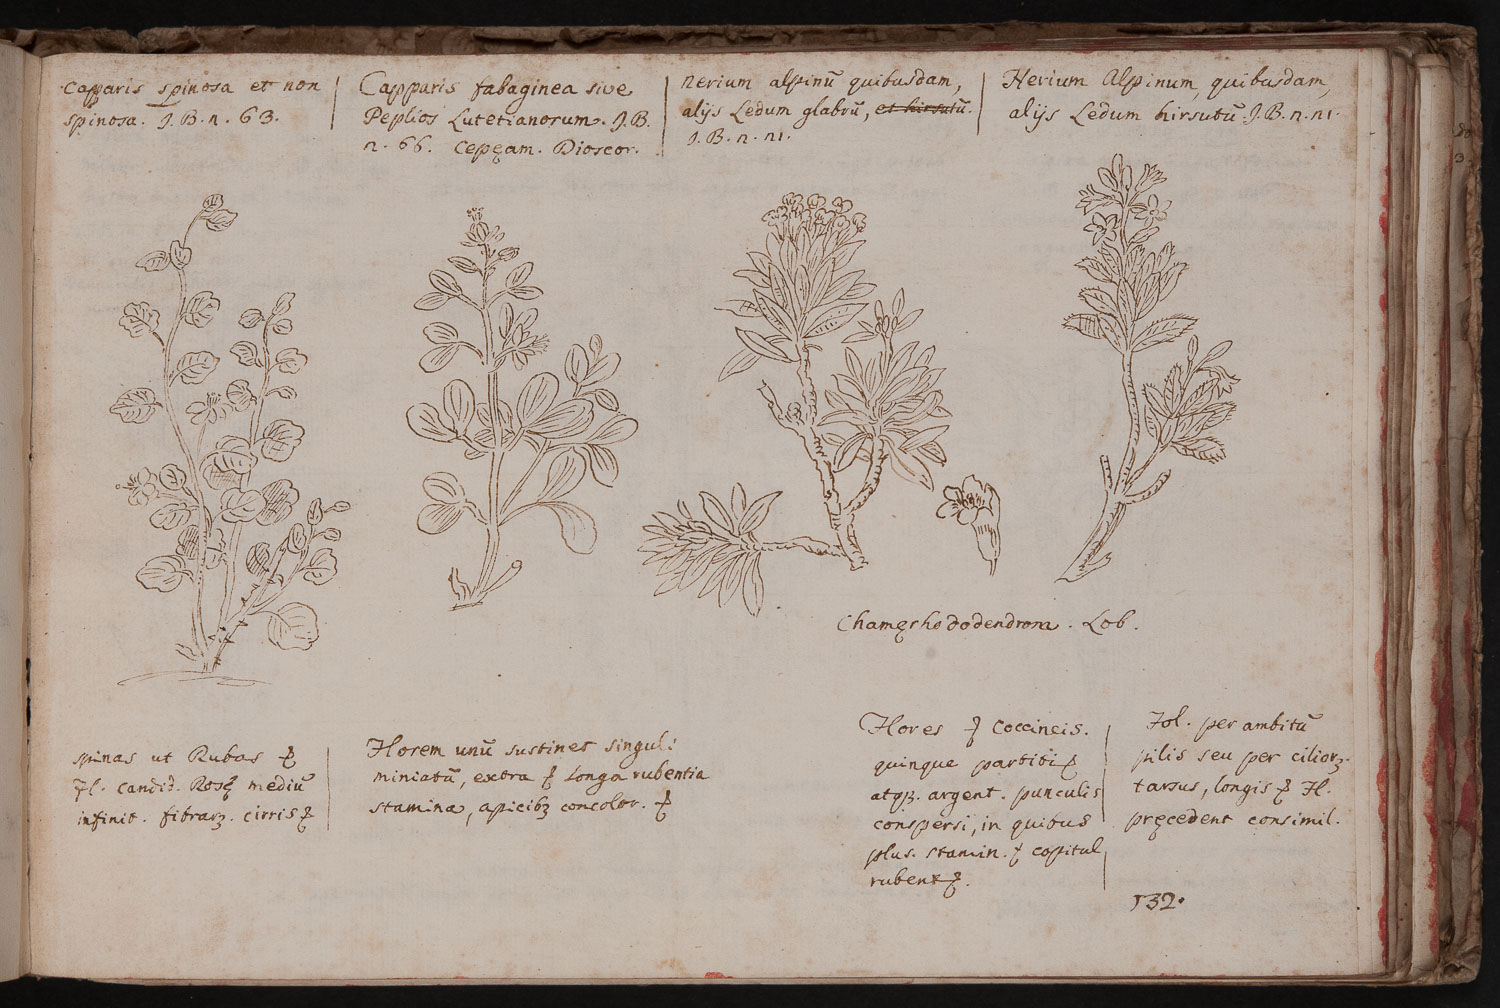 Capparis spinosa et non
spinosa. J. B. n. 63.
Capparis fabaginea sive
Peplios Lutetianorum. J. B.
n. 66. Cepęam. Dioscor.
Nerium alpinū quibusdam,
alijs Ledum glabrū, et hirsutū.
J. B. n. 21.
Nerium Alpinum, quibusdam,
alijs Ledum hirsutū. J. B. n. 21.
Chamęrhododendrona. Lob.
spinas ut Rubas
Fl. candid. Rosę mediū
infinit. fibrarꝫ. cirris
Florem unū sustinet singuli
miniatū, extra longa rubentia
stamina, apicibꝫ concolor.
Flores coccineis.
quinque partiti
atqꝫ. argent. punculis
conspersi, in quibus
plus. stamin. copitul
rubent
Fol. per ambitū
pilis seu per ciliorꝫ.
tarsus, longis Fl.
pręcedent consimil.
132.